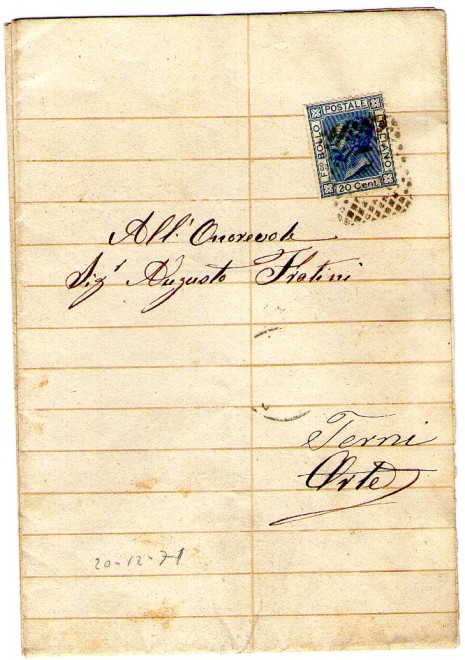 F.co BOLLO POSTALE ITALIANO
20 Cent.
All' Onorevole
Sig.r Augusto Fratini
Terni
Arte
20-12-71